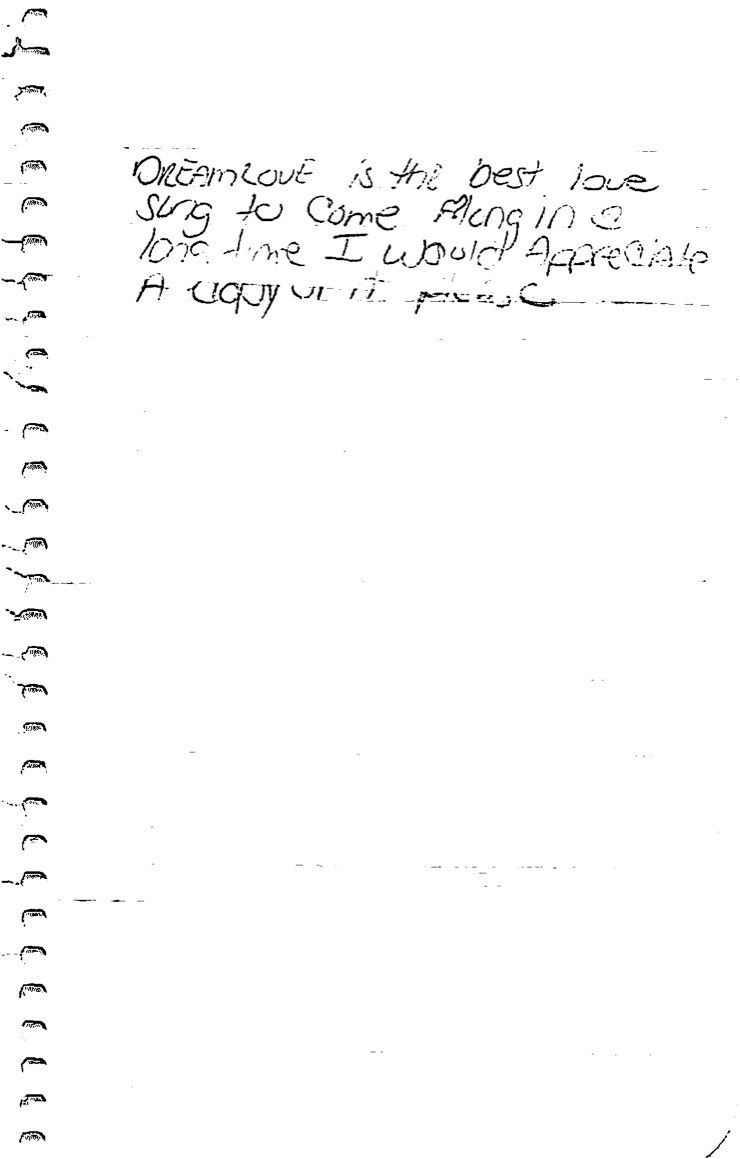 DREAMLOVE is the best love
song to Come Along in a
long time I would Appreciate
A copy of it please